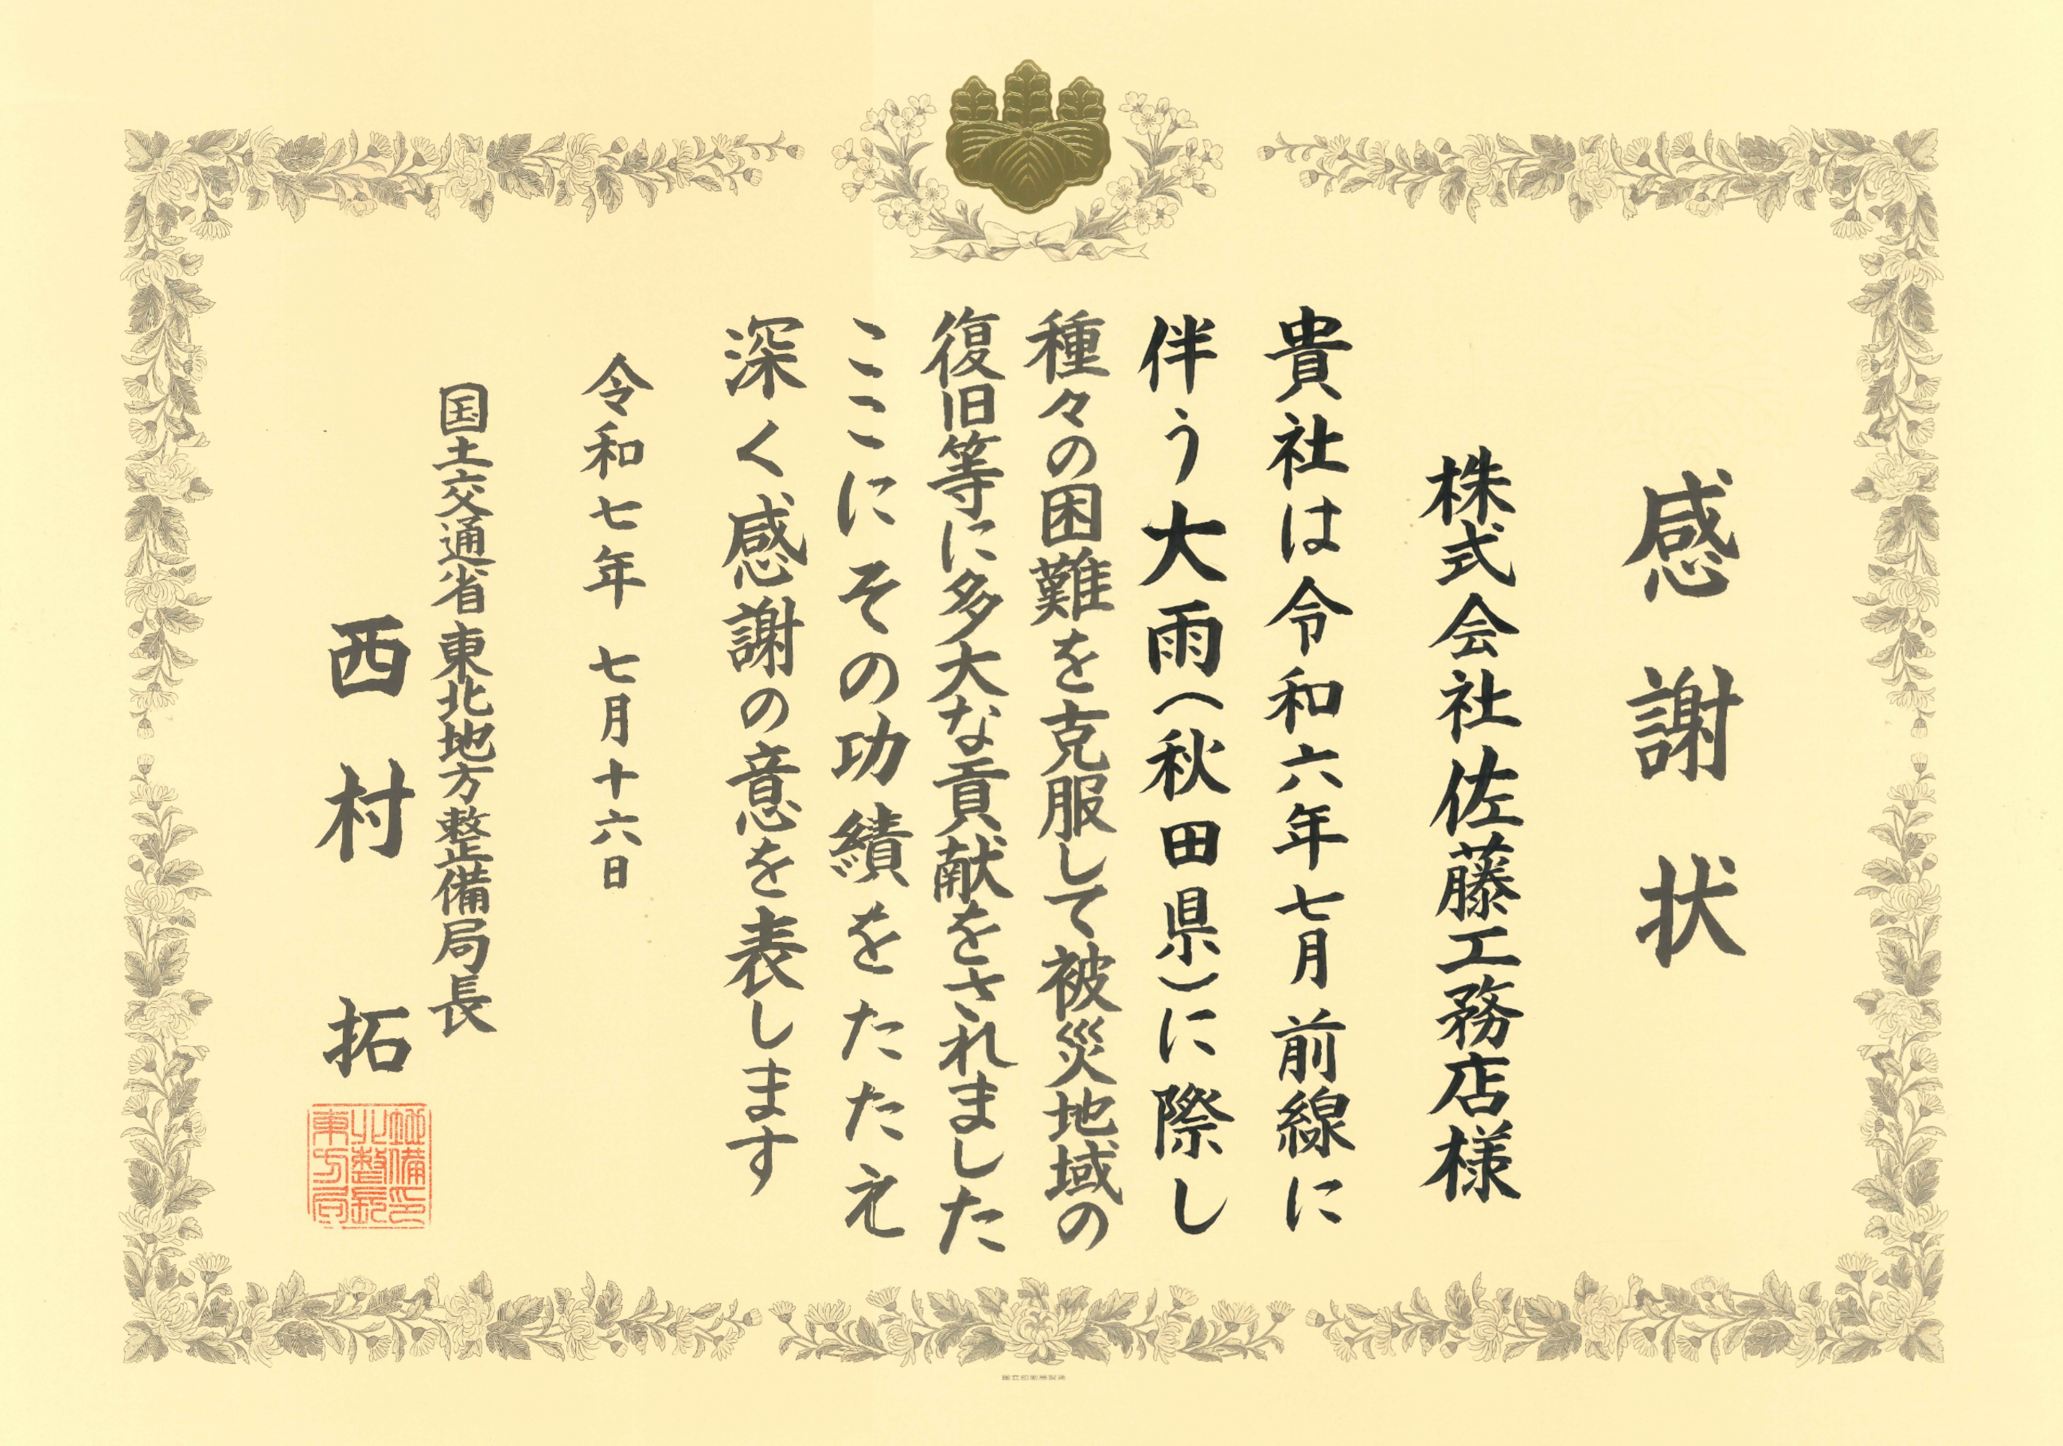 感謝状
株式会社佐藤工務店様
貴社は令和六年七月前線に
伴う大雨(秋田県)に際し
種々の困難を克服して被災地域の
復旧等に多大な貢献をされました
ここにその功績をたたえ
深く感謝の意を表します
令和七年七月十六日
国土交通省東北地方整備局長
西村拓